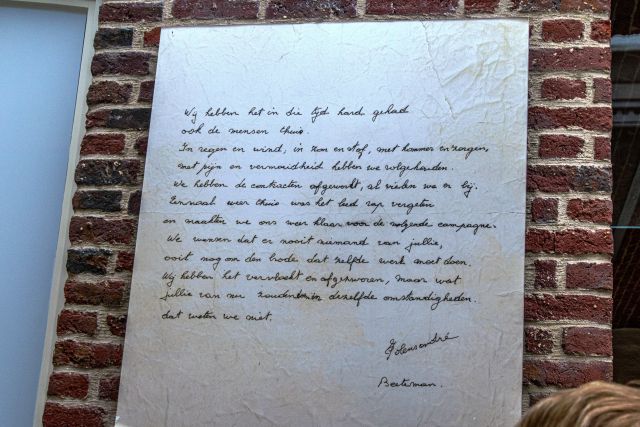 Wij hebben het in die tijd hard gehad
ook de mensen thuis.
In regen en wind, in zon en stof, met kommer en zorgen,
met pijn en vermoeidheid hebben we volgehouden.
We hebben de contracten afgewerkt, al vielen we er bij.
Eenmaal weer thuis was het leed rap vergeten
en maakten we ons weer klaar voor de volgende campagne.
We wensen dat er nooit niemand van jullie,
ooit nog om den brode dat zelfde werk moet doen.
Wij hebben het vervloekt en afgezworen, maar wat
jullie van nu zouden in dezelfde omstandigheden.
dat weten we niet.
Beeteman.